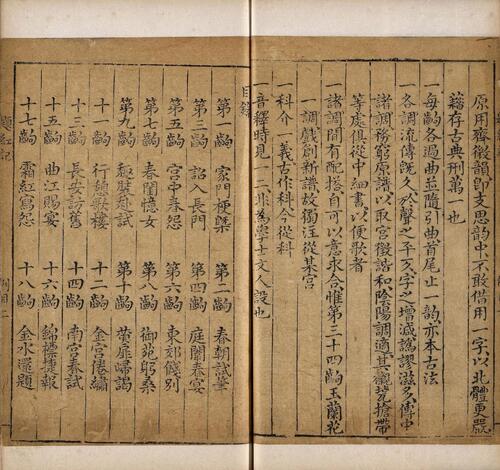 原用齊微韻即支思韻中不敢借用一字以北體更嚴
藉存古典刑第一也
一每齣各過曲並隨引曲首尾止一韻亦本古法
一各調流傳旣久於聲之平仄字之增減譌謬滋多傳中
諸調務窮原譜以取宮徵諧和陰陽調適其襯搶帶
等處俱從中細書以便歌者
一諸調間有配搭自可以意求合惟第三十四齣玉蘭花
一調戲創新譜故獨注從某宮
一科介一義古作科今從科
一音釋時見一二非為學士文人設也
目錄
第一齣 家門梗槩 第二齣 春朝試筆
第三齣 詔入長門 第四齣 庭闈春宴
第五齣 宮中春怨 第六齣 東郊餞別
第七齣 春閨憶女 第八齣 御苑躬桑
第九齣 趣裝赴試 第十齣 扉締謁
十一齣 行歌樓 十二齣 金宮倦繡
十三齣 長安訪舊 十四齣 南宮奏試
十五齣 曲江賜宴 十六齣 錦標捷報
十七齣 霜紅寫怨 十八齣 金水還題
題紅記 例目二